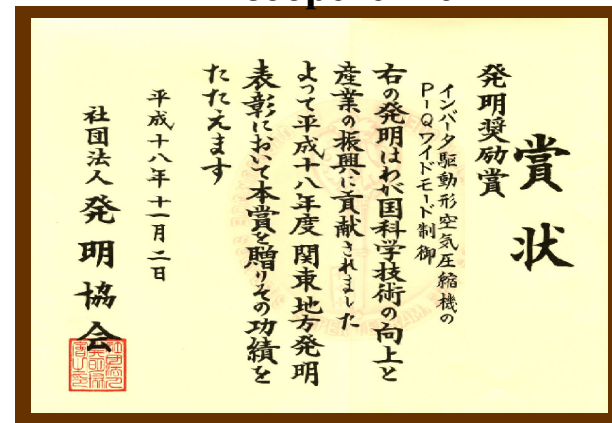 賞状
発明奨励賞
インバータ駆動形空気圧縮機の
P-Qワイドモード制御
右の発明はわが国科学技術の向上と
産業の振興に貢献されました
よって平成十八年度関東地方発明
表彰において本賞を贈りその功績を
たたえます
平成十八年十一月二日
社団法人発明協会